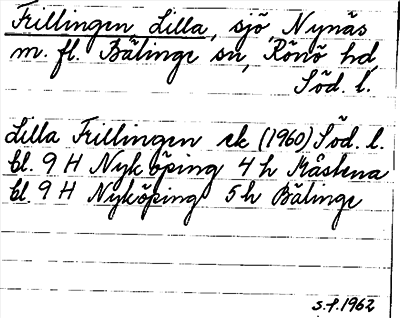 Frillingen, Lilla, sjö, Nynäs
m. fl. Bälinge sn, Rönö hd,
Söd. l.
Lilla Frillingen ek (1960) Söd. l.
bl. 9 H Nyköping 4 h
bl. 9 H Nyköping 5 h Bälinge
s.f. 1962